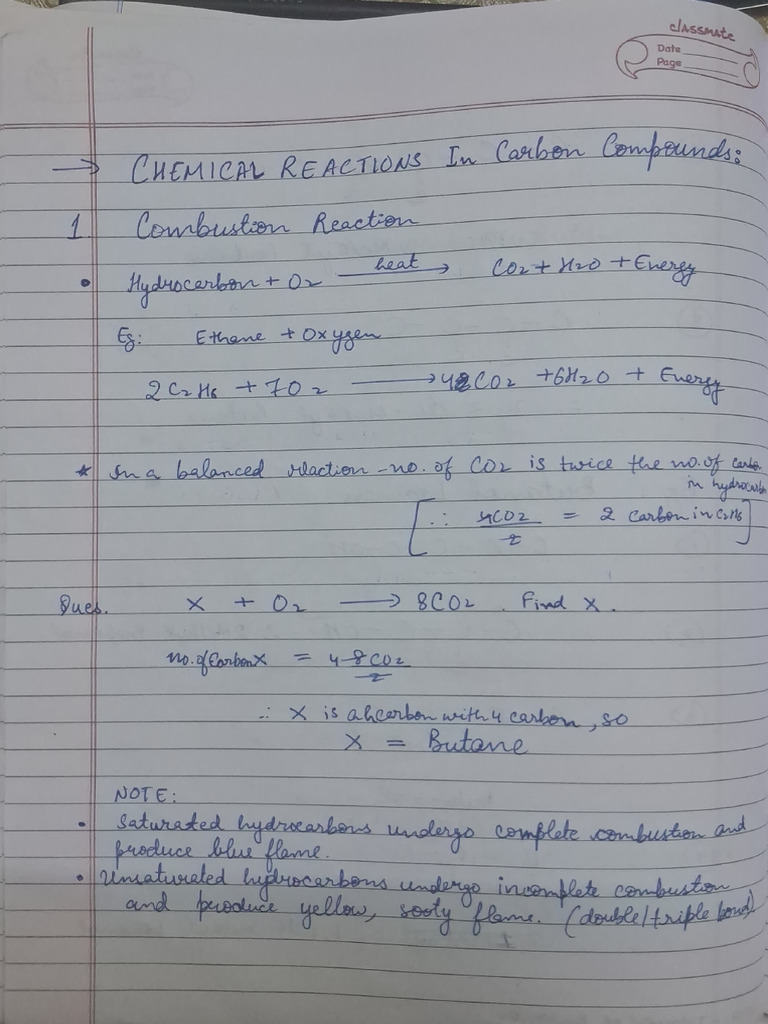 classmate
Date
Page
→ CHEMICAL REACTIONS In Carbon Compounds:
1. Combustion Reaction
• Hydrocarbon + O2 —heat→ CO2 + H2O + Energy
Eg: Ethane + Oxygen
2C2H6 + 7O2 → 4CO2 + 6H2O + Energy
* In a balanced reaction - no. of CO2 is twice the no. of carbon
in hydrocarbon
[∴ 4CO2/2 = 2 carbon in C2H6]
Ques. X + O2 → 8CO2. Find X.
no. of Carbon X = 4 8CO2/2
∴ X is a hcarbon with 4 carbon, so
X = Butane
NOTE:
• Saturated hydrocarbons undergo complete combustion and
produce blue flame.
• Unsaturated hydrocarbons undergo incomplete combustion
and produce yellow, sooty flame. (double/triple bond)